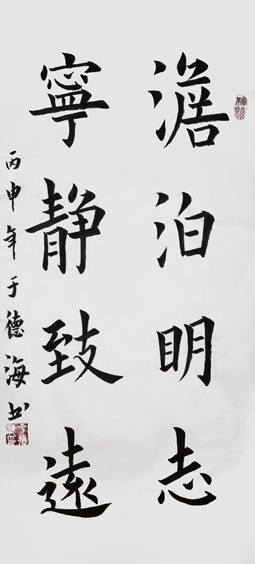 澹泊明志
寧靜致遠
丙申年于德海书